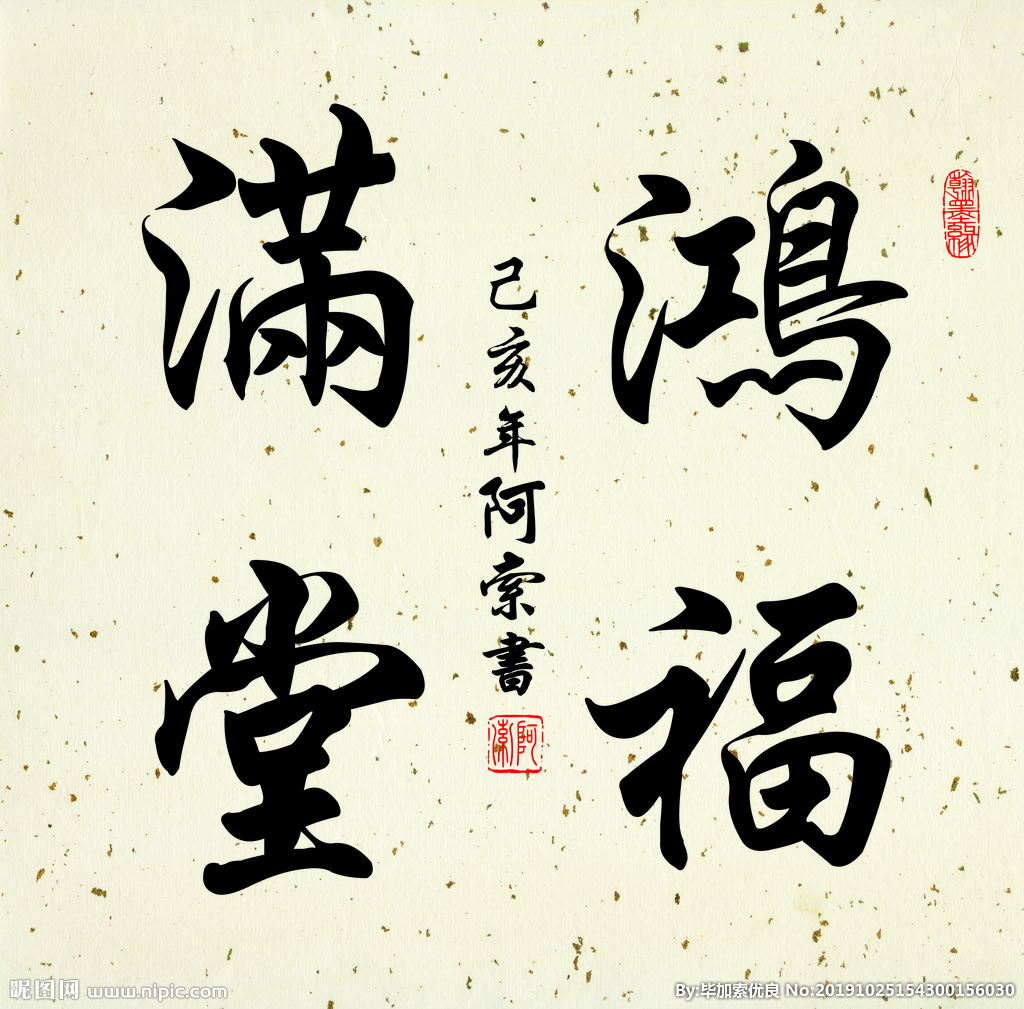 鴻福
滿堂
己亥年阿索書
翰墨緣
阿索
昵图网 www.nipic.com
By:毕加索优良 No:20191025154300156030